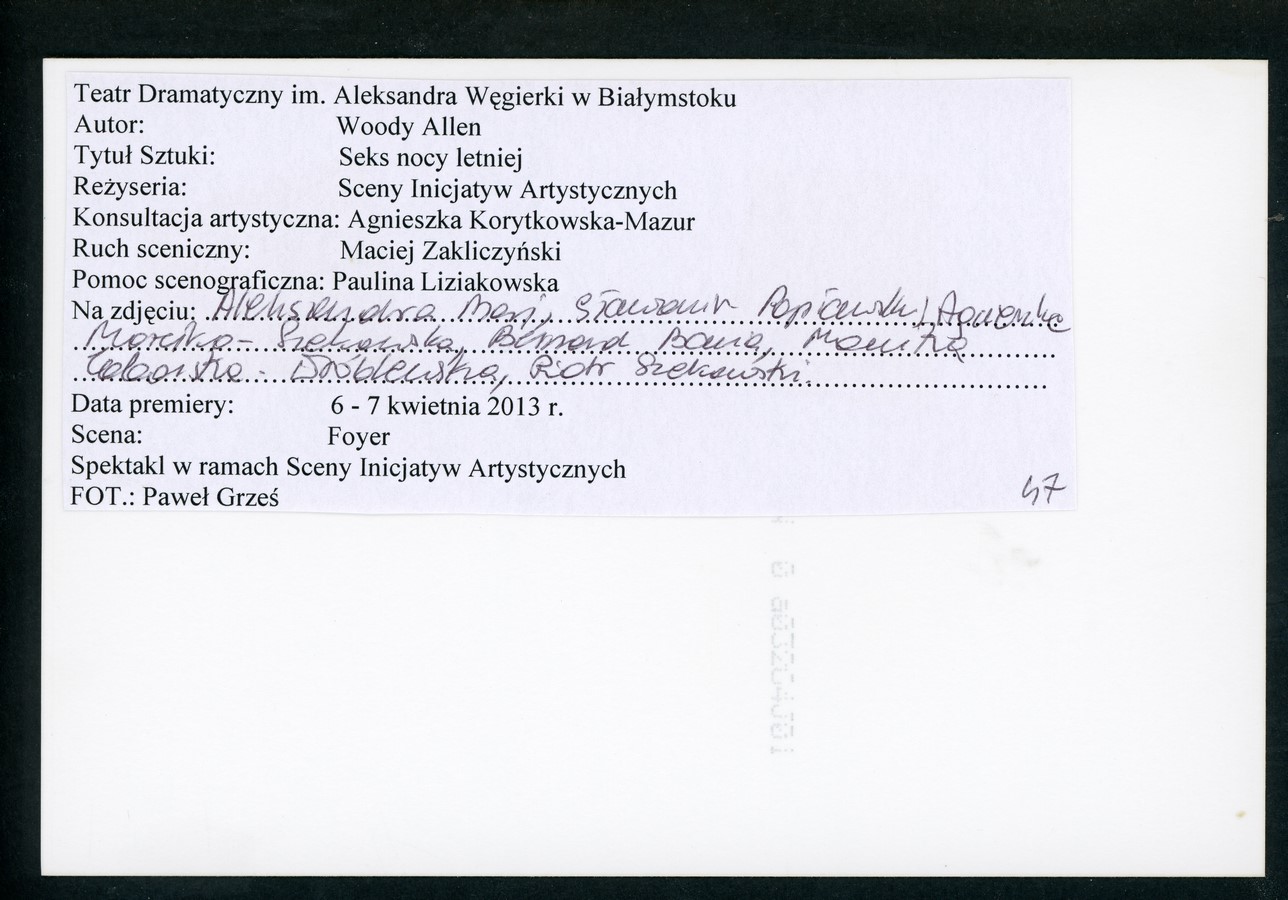 Teatr Dramatyczny im. Aleksandra Węgierki w Białymstoku
Autor: Woody Allen
Tytuł Sztuki: Seks nocy letniej
Reżyseria: Sceny Inicjatyw Artystycznych
Konsultacja artystyczna: Agnieszka Korytkowska-Mazur
Ruch sceniczny: Maciej Zakliczyński
Pomoc scenograficzna: Paulina Liziakowska
Na zdjęciu: Aleksandra Maj, Sławomir Popławski, Agnieszka
Możejko-Szekowska, Bernard Bania, Monika
Wróblewska, Piotr Szekowski.
Data premiery: 6 - 7 kwietnia 2013 r.
Scena: Foyer
Spektakl w ramach Sceny Inicjatyw Artystycznych
FOT.: Paweł Grześ
47